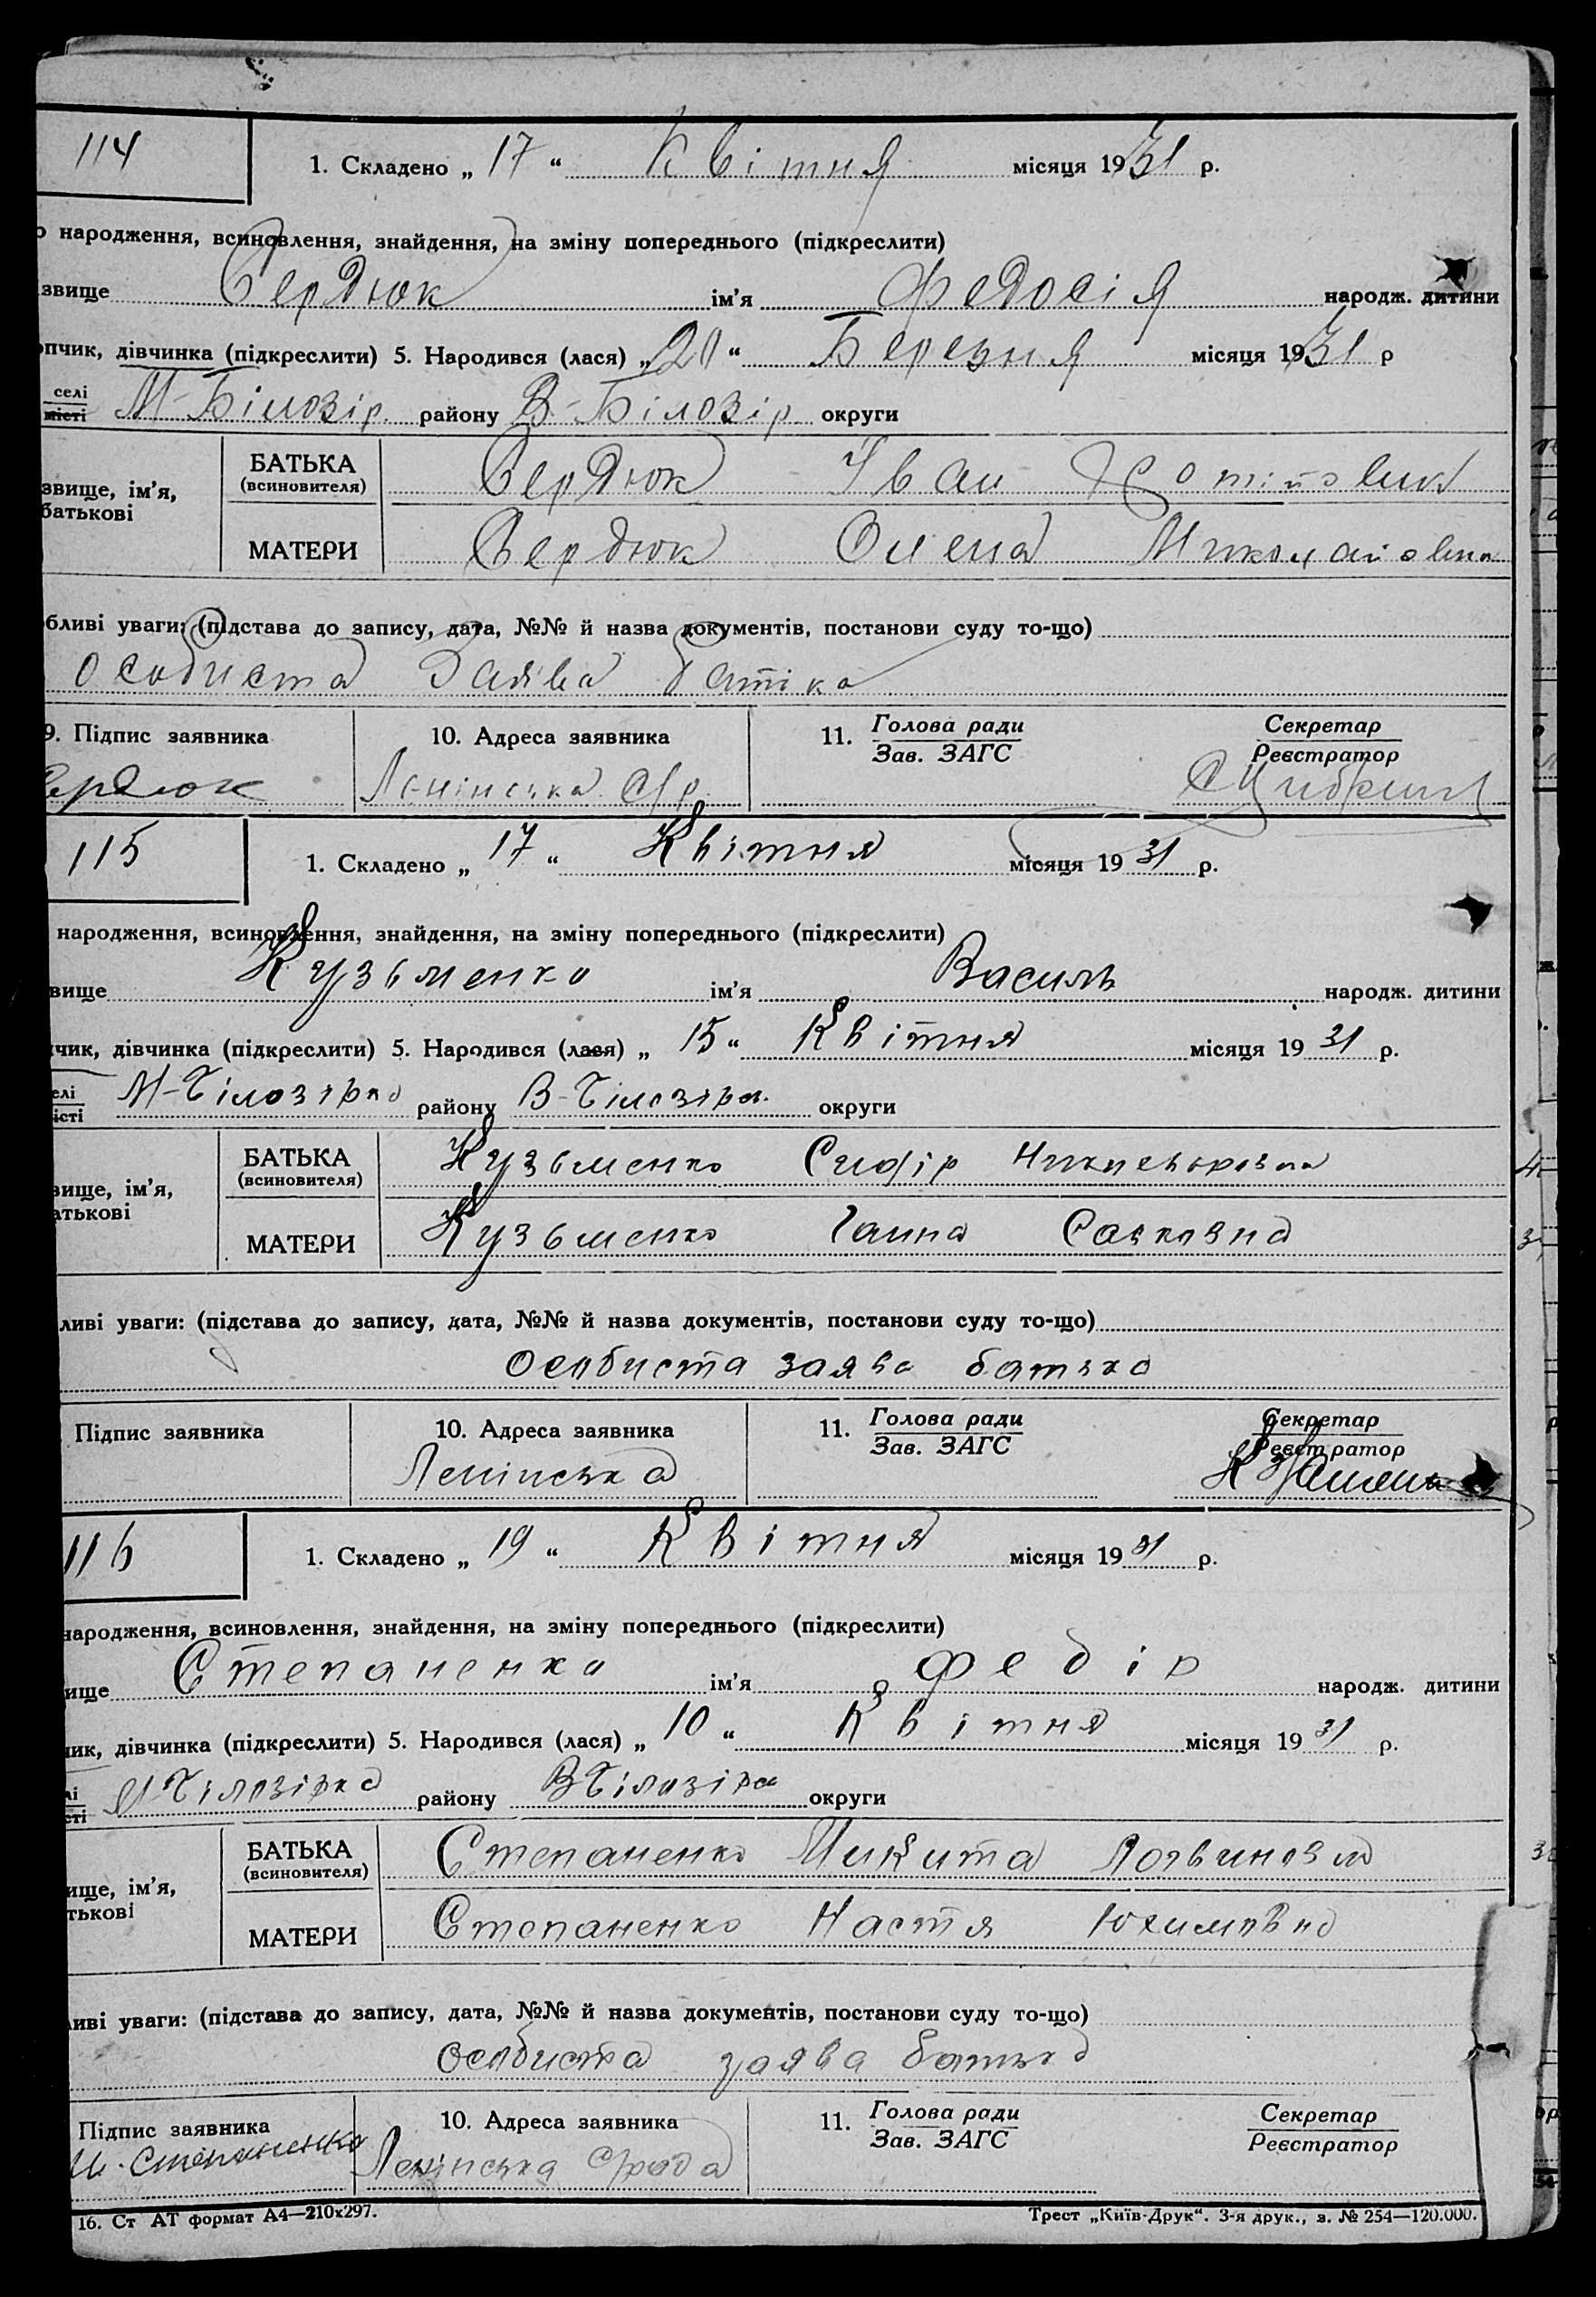 114
1. Складено „ 17 “ Квітня місяця 1931 р.
о народження, всиновлення, знайдення, на зміну попереднього (підкреслити)
звище Сердюк ім'я Федосія народж. дитини
опчик, дівчинка (підкреслити) 5. Народився (лася) „ 20 “ Березня місяця 1931 р
селі
місті М-Білозір. району В-Білозір. округи
звище, ім'я,
батькові
БАТЬКА
(всиновителя)
Сердюк Іван
МАТЕРИ
Сердюк Олена Миколаївна
обливі уваги: (підстава до запису, дата, №№ й назва документів, постанови суду то-що)
особиста заява батька
9. Підпис заявника 10. Адреса заявника 11. Голова ради Секретар
Зав. ЗАГС Реєстратор
ердюк Ленінська с/р.
115
1. Складено „ 17 “ Квітня місяця 19 31 р.
народження, всиновлення, знайдення, на зміну попереднього (підкреслити)
вище Кузьменко ім'я Василь народж. дитини
пчик, дівчинка (підкреслити) 5. Народився (лася) „ 15 “ Квітня місяця 19 31 р.
елі
істі М-Білозірка району В-Білозірка округи
вище, ім'я,
атькові
БАТЬКА
(всиновителя)
Кузьменко Сидір
МАТЕРИ
Кузьменко Ганна Савковна
ливі уваги: (підстава до запису, дата, №№ й назва документів, постанови суду то-що)
Особиста заява батька
Підпис заявника 10. Адреса заявника 11. Голова ради Секретар
Зав. ЗАГС Реєстратор
Ленінська
116
1. Складено „ 19 “ Квітня місяця 19 31 р.
народження, всиновлення, знайдення, на зміну попереднього (підкреслити)
ище Степаненко ім'я Федір народж. дитини
чик, дівчинка (підкреслити) 5. Народився (лася) „ 10 “ Квітня місяця 19 31 р.
лі
сті М-Білозірка району В Білозірка округи
ище, ім'я,
тькові
БАТЬКА
(всиновителя)
Степаненко Микита
МАТЕРИ
Степаненко Настя Юхимовна
ливі уваги: (підстава до запису, дата, №№ й назва документів, постанови суду то-що)
Особиста заява батька
Підпис заявника 10. Адреса заявника 11. Голова ради Секретар
Зав. ЗАГС Реєстратор
М. Степаненко Ленінська с/рада
16. Ст АТ формат А4—210х297. Трест „Київ-Друк“. 3-я друк., з. № 254—120.000.